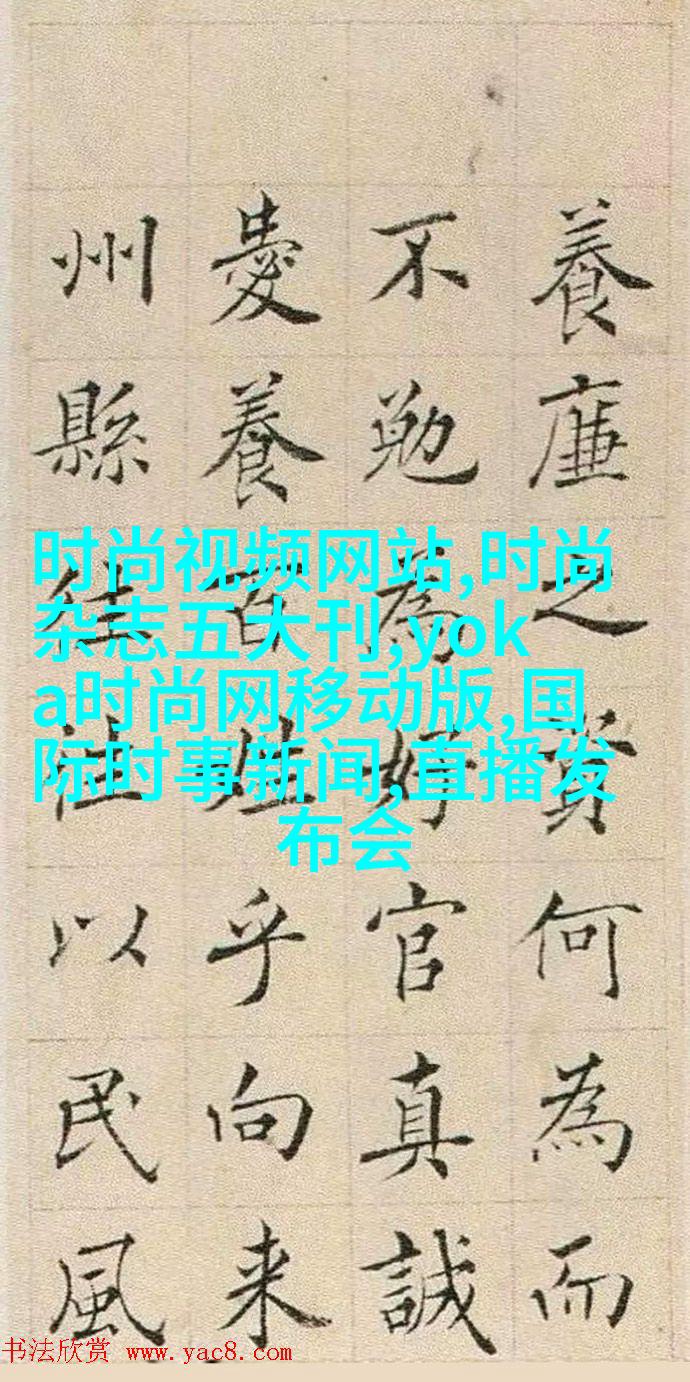 養廉之資何為而
不勉為好官真誠
愛養百姓乎向来
州縣往往以民風
时尚视频网站,时尚
杂志五大刊,yok
a时尚网移动版,国
际时事新闻,直播发
布会
书法欣赏 www.yac8.com